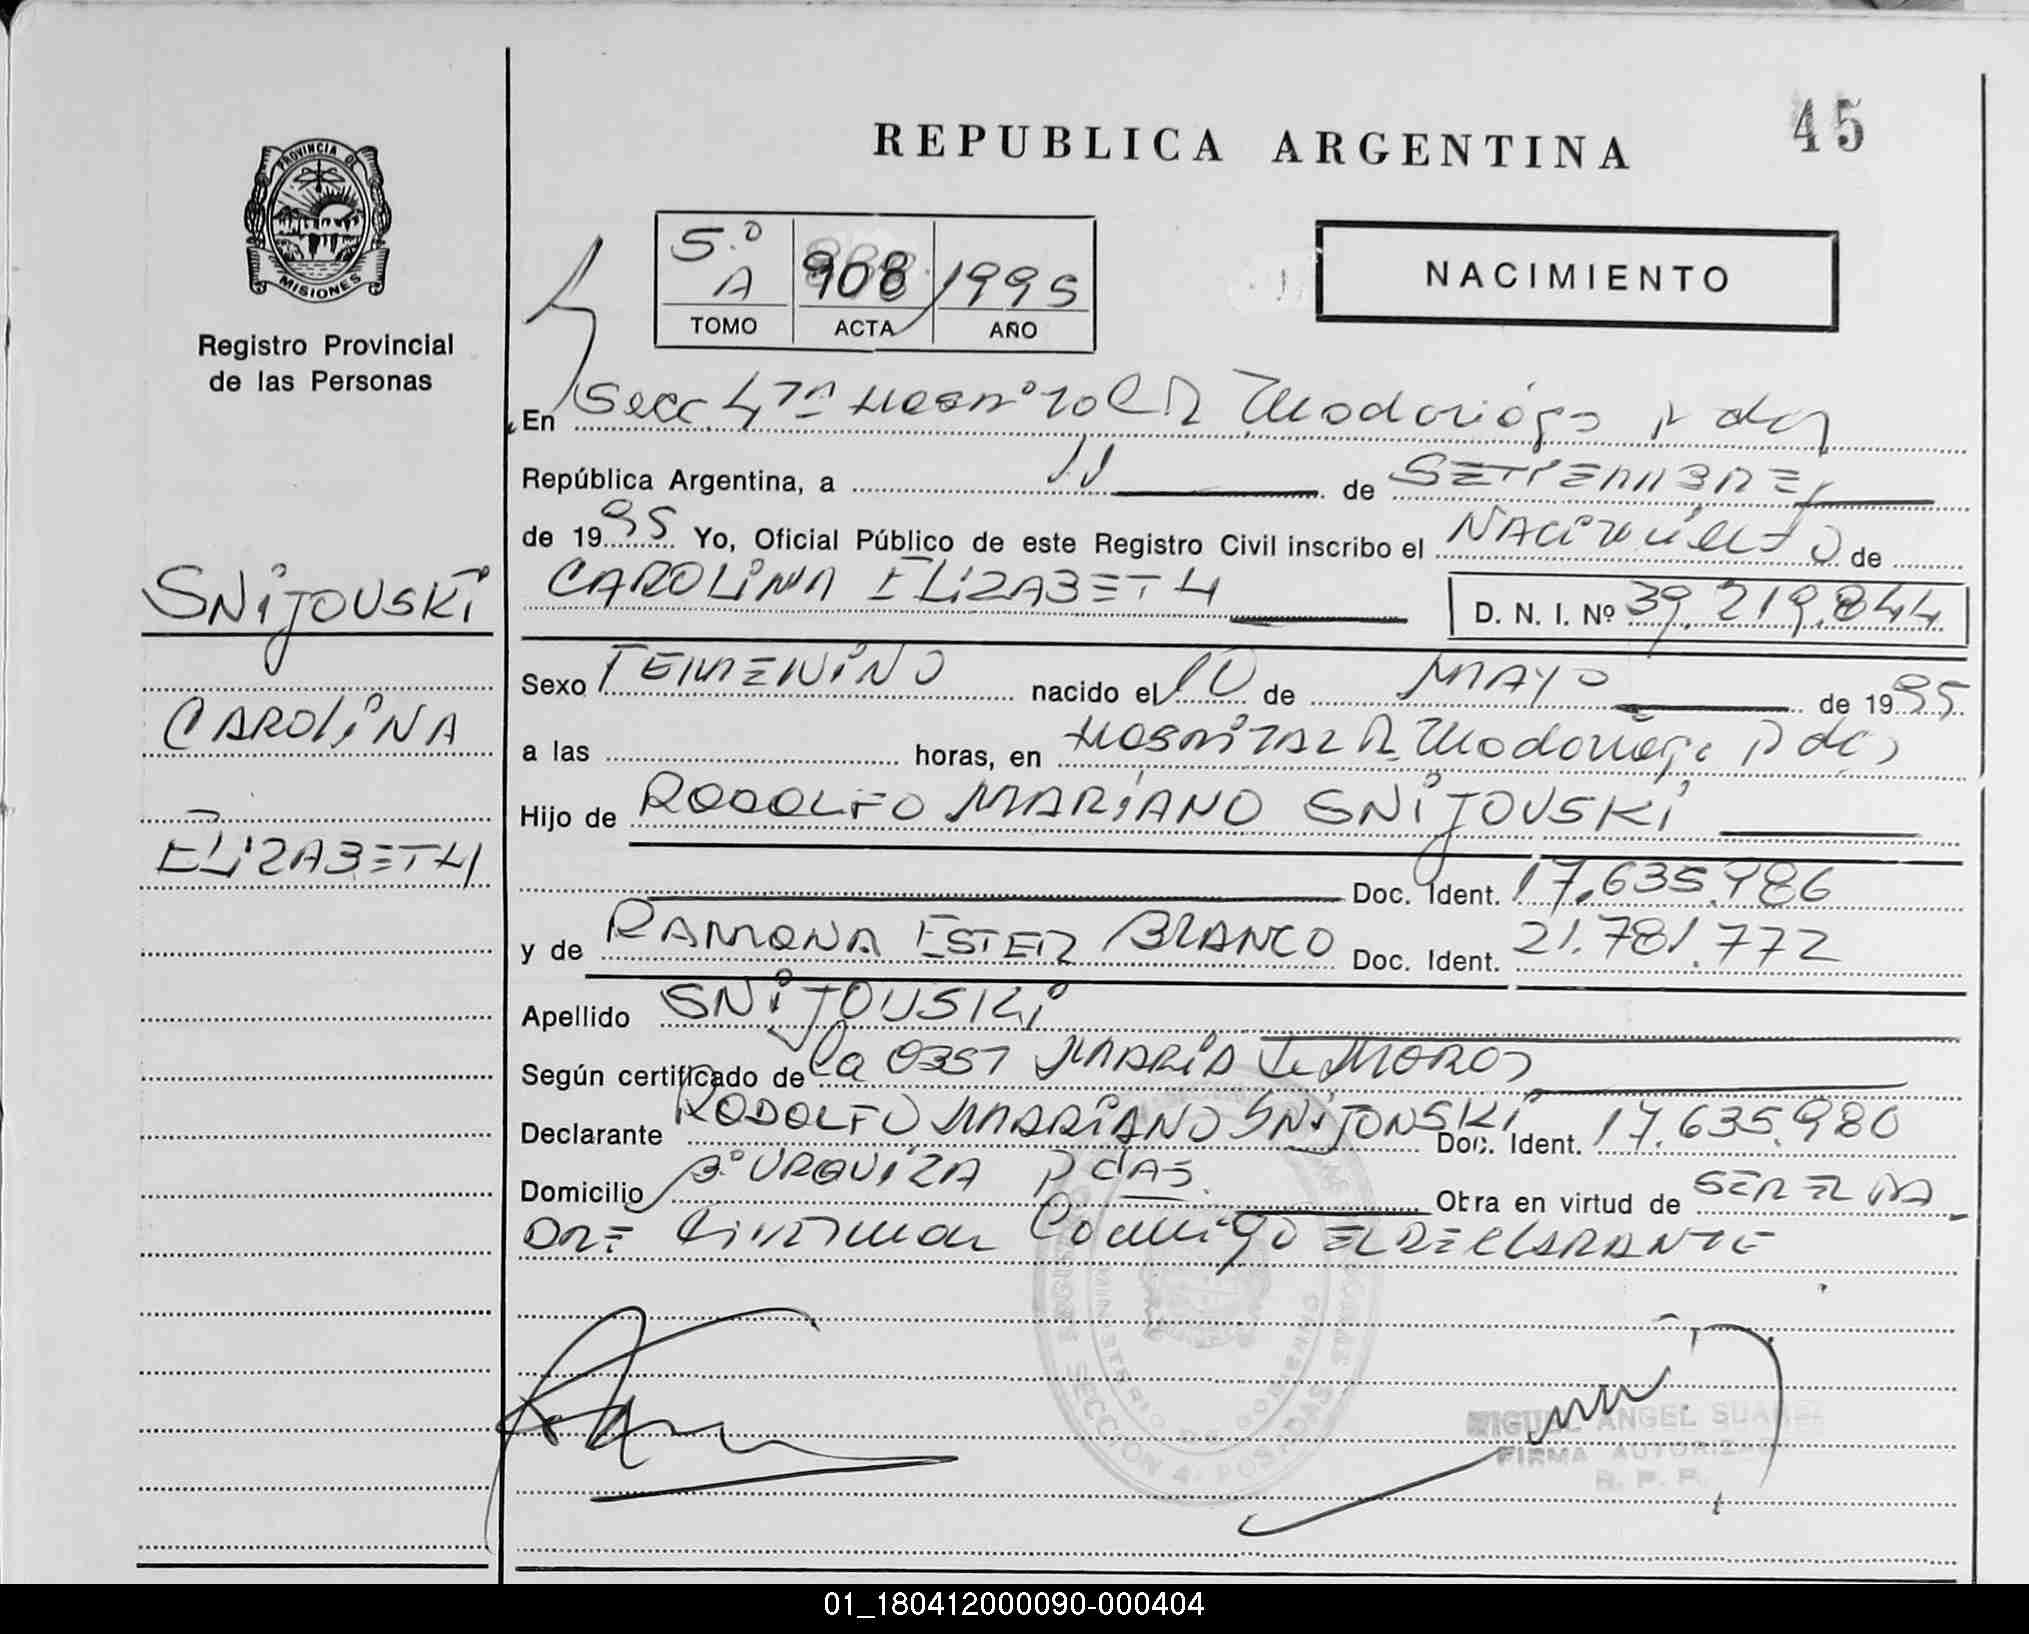 45
REPUBLICA ARGENTINA
PROVINCIA DE
MISIONES
Registro Provincial
de las Personas
5.º A 908 1995
TOMO ACTA AÑO
NACIMIENTO
En Secc 4ta Hospital R Madariaga Pdas
República Argentina, a 11 de SETIEMBRE
de 1995 Yo, Oficial Público de este Registro Civil inscribo el NACIMIENTO de
CAROLINA ELIZABETH D. N. I. Nº 39.219.844
SNIJOUSKI
CAROLINA
ELIZABETH
Sexo FEMENINO nacido el 10 de MAYO de 1995
a las horas, en HOSPITAL R Madariaga Pdas
Hijo de RODOLFO MARIANO SNIJOUSKI
Doc. Ident. 17.635.986
y de RAMONA ESTER BLANCO Doc. Ident. 21.781.772
Apellido SNIJOUSKI
Según certificado de la 0351 MARIA
Declarante RODOLFO MARIANO SNIJOUSKI Doc. Ident. 17.635.980
Domicilio Bº URQUIZA PDAS. Otra en virtud de SER EL PA
DRE firman Conmigo EL DECLARANTE
SECCION 4 POSADAS
MINISTERIO DE GOBIERNO
MIGUEL ANGEL SUAREZ
FIRMA AUTORIZADA
R. P. P.
01_180412000090-000404